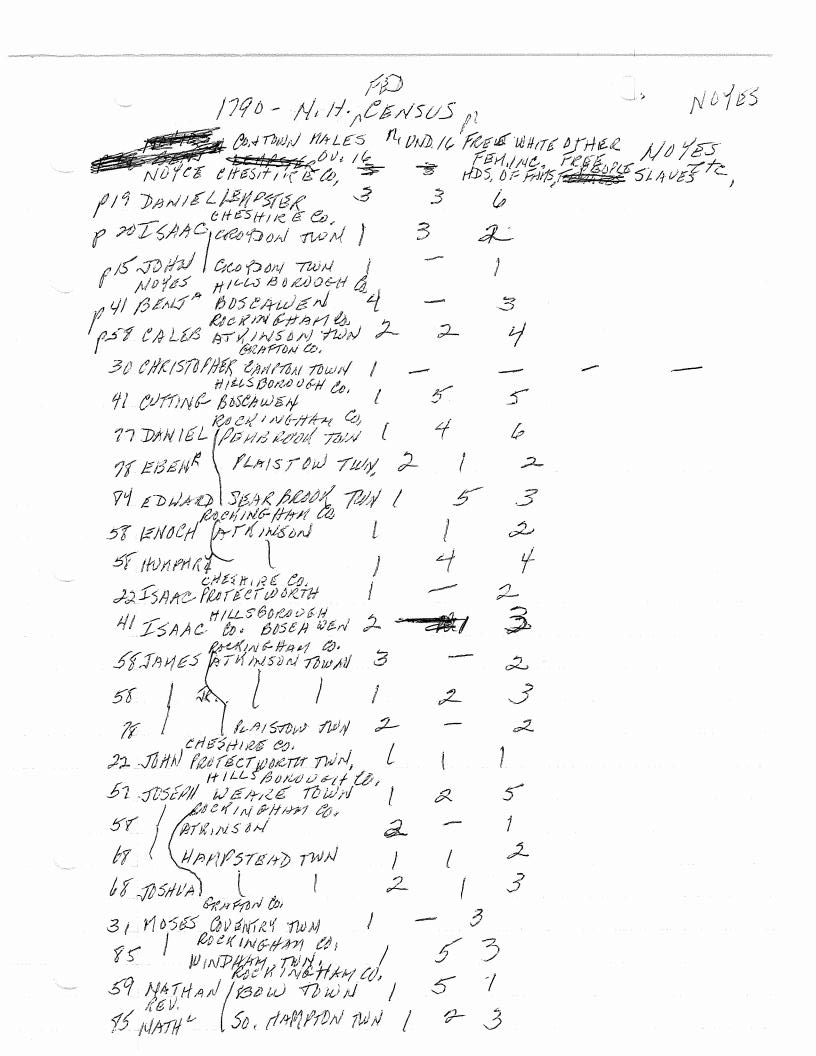 FED
1790 - N.H. CENSUS NOYES
CO. & TOWN MALES M. UND. 16 FREE WHITE OTHER NOYES
OV. 16 FEM, INC. FREE ETC,
NOYCE CHESHIRE CO, HDS, OF FAMS, PEOPLE SLAVES
p19 DANIEL LEMPSTER 3 3 6
CHESHIRE CO.
p 20 ISAAC CROYDON TWN 1 3 2
p15 JOHN CROYDON TWN 1 - 1
NOYES HILLSBOROUGH CO
p41 BENJA BOSCAWEN 4 - 3
ROCKINGHAM CO
p58 CALEB ATKINSON TWN 2 2 4
GRAFTON CO.
30 CHRISTOPHER CAMPTON TOWN 1 - - - -
HILLSBOROUGH CO.
41 CUTTING BOSCAWEN 1 5 5
ROCKINGHAM CO,
77 DANIEL PEMBROOK TOWN 1 4 6
78 EBENR PLAISTOW TWN, 2 1 2
84 EDWARD SEABROOK TWN 1 5 3
ROCKINGHAM CO
58 ENOCH ATKINSON 1 1 2
58 HUMPHRY 1 4 4
CHESHIRE CO.
22 ISAAC PROTECTWORTH 1 - 2
HILLSBOROUGH
41 ISAAC CO. BOSCAWEN 2 1 3
ROCKINGHAM CO.
58 JAMES ATKINSON TOWN 3 - 2
58 JR. 1 2 3
78 PLAISTOW TWN 2 - 2
CHESHIRE CO.
22 JOHN PROTECTWORTH TWN, 1 1 1
HILLSBOROUGH CO,
57 JOSEPH WEARE TOWN 1 2 5
ROCKINGHAM CO.
58 ATKINSON 2 - 1
68 HAMPSTEAD TWN 1 1 2
68 JOSHUA 2 1 3
GRAFTON CO,
31 MOSES COVENTRY TWN 1 - 3
ROCKINGHAM CO,
85 WINDHAM, TWN, 1 5 3
ROCKINGHAM CO,
59 NATHAN BOW TOWN 1 5 1
REV.
85 NATHL SO. HAMPTON TWN 1 2 3